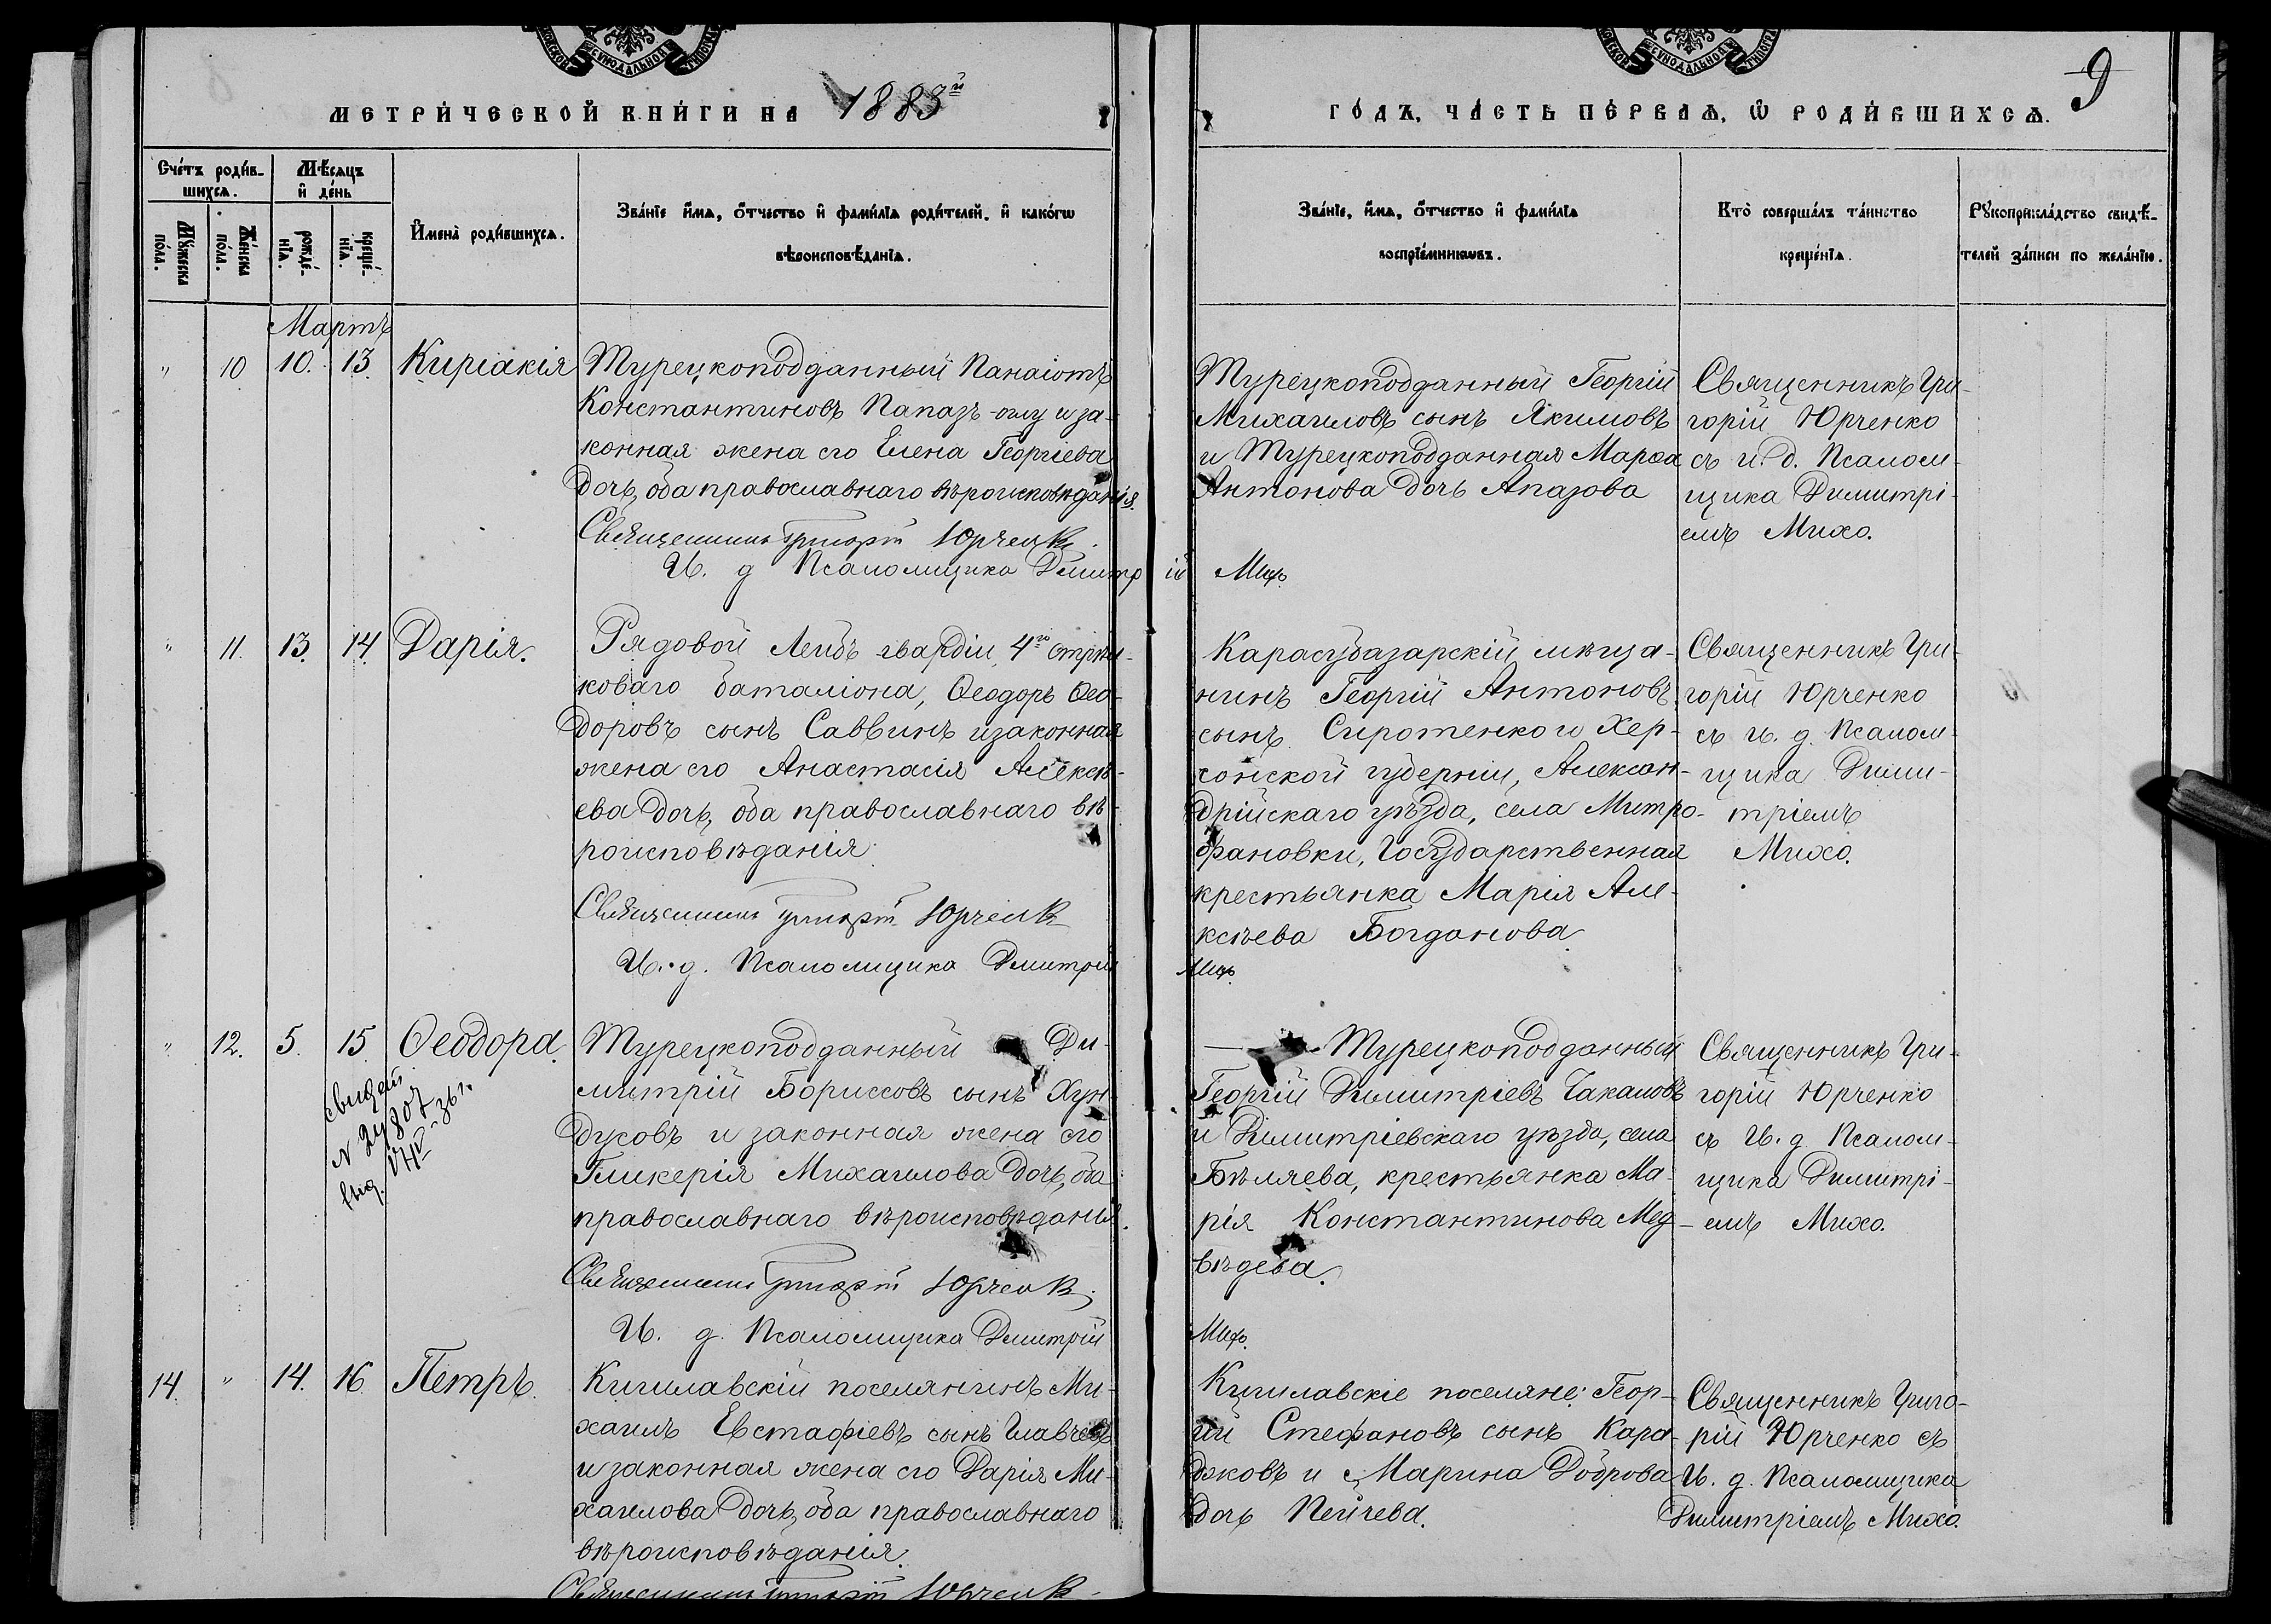 МЕТРИ́ЧЕСКОЙ КНИ́ГИ НА 1883й
ГО́ДЪ, ЧА́СТЬ ПЕ́РВАѦ, Ѡ҆ РОДИ́ВШИХСѦ.
9
Сче́тъ роди́в-
шихсѧ.
Мѣ́сѧцъ
и҆ де́нь
Мꙋ́жеска
по́ла.
Же́нска
по́ла.
рожде́-
нїѧ.
креще́-
нїѧ.
И҆мена̀ роди́вшихсѧ.
Зва́нїе и҆́мѧ, ѻ҆́тчество и҆ фами́лїѧ роди́телей, и҆ како́гѡ
вѣроисповѣ́данїѧ.
Зва́нїе, и҆́мѧ, ѻ҆́тчество и҆ фами́лїѧ
воспрїе́мникѡвъ.
Кто̀ соверша́лъ та́инство
креще́нїѧ.
Рꙋкоприкла́дство свидѣ́-
телей за́писи по жела́нїю.
Мартъ
" 10 10. 13. Киріакія
Турецкоподданный Панаіотъ
Константиновъ Папазъ-оглу и за-
конная жена его Елена Георгіева
дочь, оба православнаго вѣроисповѣданія.
Священникъ Григорій Юрченко
И. д Псаломщика Димитрій Михо
Турецкоподданный Георгій
Михаиловъ сынъ Якимовъ
и Турецкоподданная Марѳа
Антонова дочь Апазова
Священникъ Гри-
горій Юрченко
съ и. д. Псалом-
щика Димитрі-
емъ Михо.
" 11. 13. 14. Дарія.
Рядовой Лейбъ гвардіи, 4го стрѣл-
коваго баталіона, Ѳеодоръ Ѳео-
доровъ сынъ Саввинъ и законная
жена его Анастасія Алексѣ-
ева дочь, оба православнаго вѣ-
роисповѣданія.
Священникъ Григорій Юрченко
И. д. Псаломщика Димитрій Михо
Карасубазарскій мѣща-
нинъ Георгій Антоновъ
сынъ Сиротенко и Хер-
сонской губерніи, Алексан-
дрійскаго уѣзда, села Митро-
фановки, Государственная
крестьянка Марія Але-
ксѣева Богданова
Священникъ Гри-
горій Юрченко
съ и. д. Псалом-
щика Дими-
тріемъ
Михо.
" 12. 5. 15. Ѳеодора
свидѣт.
N 24807
выд.
Турецкоподданный Ди-
митрій Бориссовъ сынъ Хун-
дусовъ и законная жена его
Гликерія Михаилова дочь, оба
православнаго вѣроисповѣданія.
Священникъ Григорій Юрченко
И. д. Псаломщика Димитрій Михо.
Турецкоподданный
Георгій Димитріевъ Чакаловъ
и Димитріевскаго уѣзда, села
Бѣляева, крестьянка Ма-
рія Константинова Мед-
вѣдева.
Священникъ Гри-
горій Юрченко
съ И. д. Псалом-
щика Димитрі-
емъ Михо.
14. " 14. 16. Петръ.
Кишлавскій поселянинъ Ми-
хаилъ Евстафіевъ сынъ Главчевъ
и законная жена его Дарія Ми-
хаилова дочь, оба православнаго
вѣроисповѣданія.
Священникъ Григорій Юрченко
Кишлавскіе поселяне: Геор-
гій Стефановъ сынъ Кара-
джовъ и Марина Доброва
дочь Пейчева.
Священникъ Григо-
рій Юрченко съ
И. д. Псаломщика
Димитріемъ Михо.